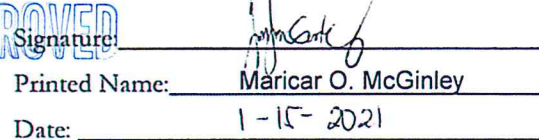 ROVED
Signature:
Printed Name: Maricar O. McGinley
Date: 1-15-2021